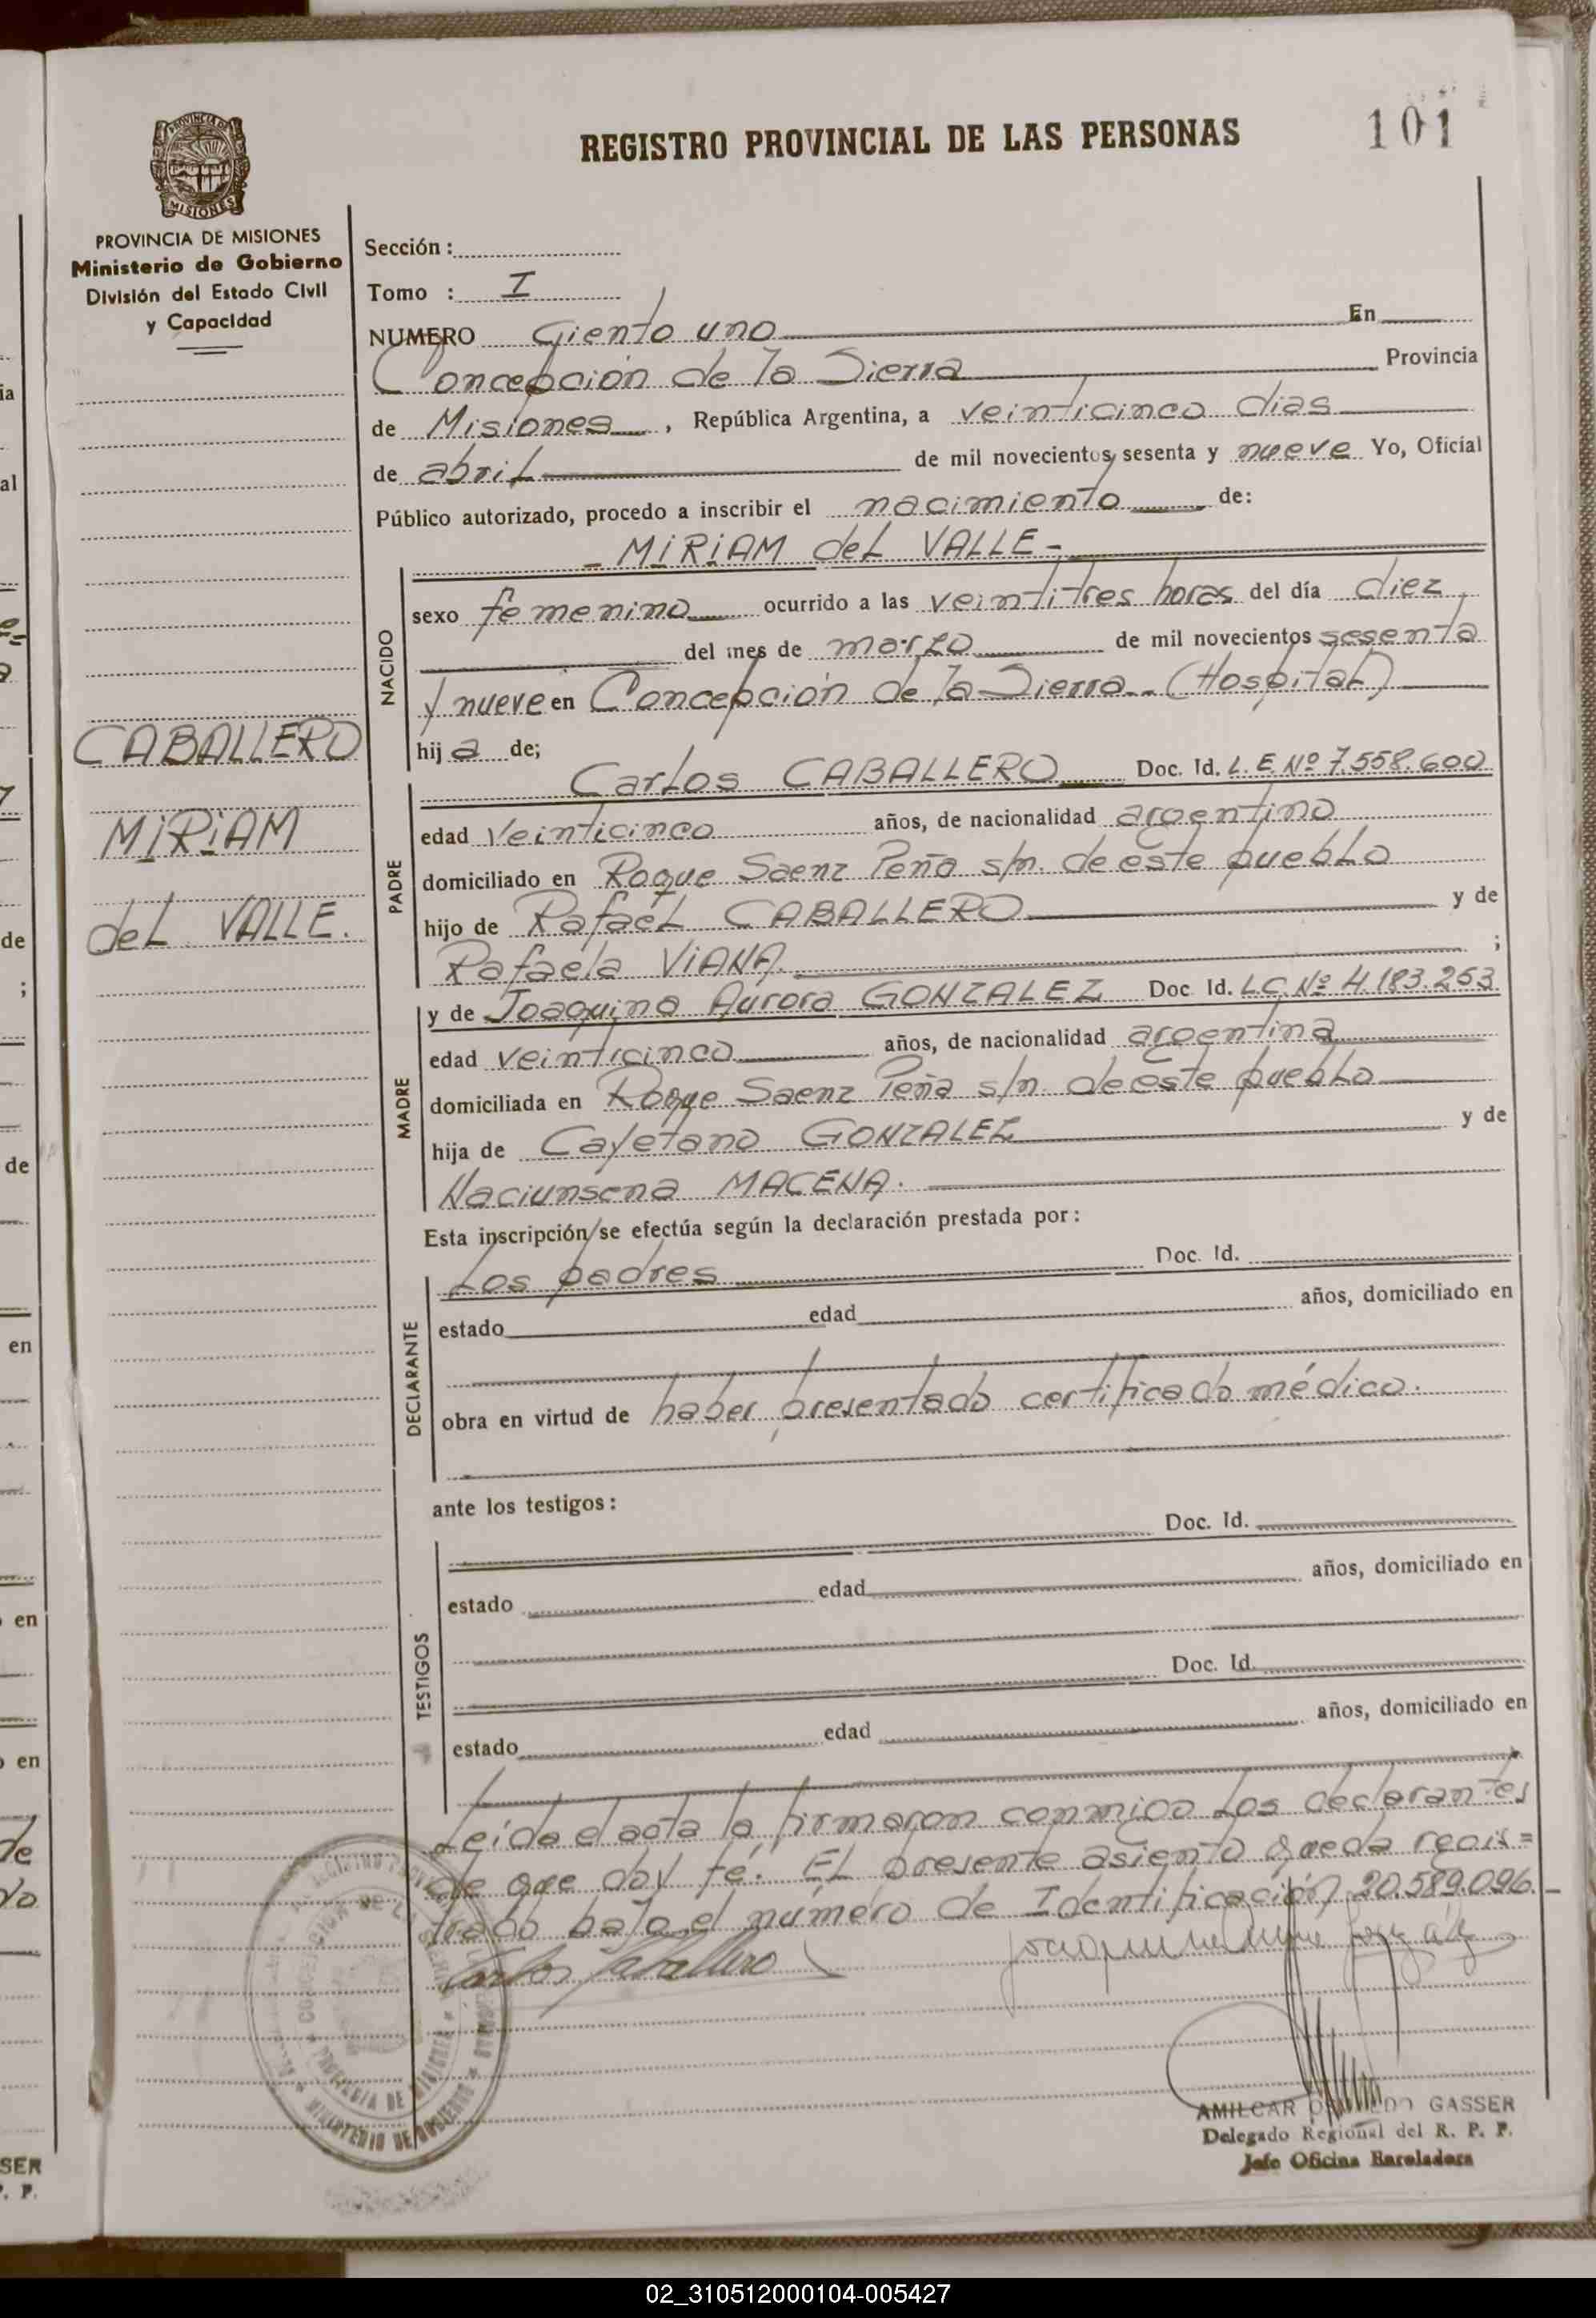 REGISTRO PROVINCIAL DE LAS PERSONAS
101
PROVINCIA DE MISIONES
Ministerio de Gobierno
División del Estado Civil
y Capacidad
Sección :
Tomo : I
NUMERO Ciento uno En
Concepción de la Sierra Provincia
de Misiones , República Argentina, a veinticinco dias
de abril de mil novecientos sesenta y nueve Yo, Oficial
Público autorizado, procedo a inscribir el nacimiento de:
- MIRIAM del VALLE -
NACIDO
sexo femenino ocurrido a las veintitres horas del día diez
del mes de marzo de mil novecientos sesenta
y nueve en Concepción de la Sierra - (Hospital)
hija de;
CABALLERO
MIRIAM
del VALLE.
PADRE
Carlos CABALLERO Doc. Id. L.E. Nº 7.558.600
edad veinticinco años, de nacionalidad argentino
domiciliado en Roque Saenz Peña s/n. de este pueblo
hijo de Rafael CABALLERO y de
Rafaela VIANA. ;
MADRE
y de Joaquina Aurora GONZALEZ Doc Id. L.C. Nº 4.183.253
edad veinticinco años, de nacionalidad argentina
domiciliada en Roque Saenz Peña s/n. de este pueblo
hija de Cayetano GONZALEZ y de
MACENA.
Esta inscripción se efectúa según la declaración prestada por :
DECLARANTE
Los padres Doc. Id.
estado edad años, domiciliado en
obra en virtud de haber presentado certificado médico.
ante los testigos :
TESTIGOS
Doc. Id.
estado edad años, domiciliado en
Doc. Id.
estado edad años, domiciliado en
Leída el acta la firmaron conmigo los declarantes
de que doy fé. El presente asiento queda regis=
trado bajo el número de Identificación 20.589.096.-
Carlos Caballero
AMILCAR GASSER
Delegado Regional del R. P. P.
Jefe Oficina Enroladora
PROVINCIA DE MISIONES
MINISTERIO DE GOBIERNO
02_310512000104-005427